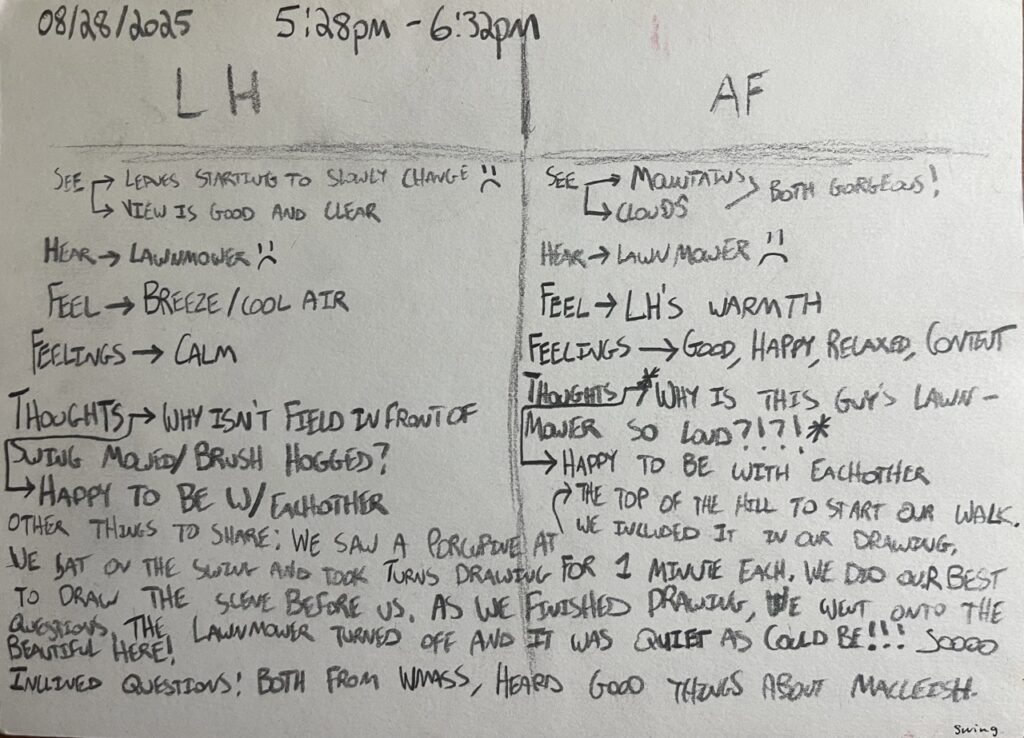 08/28/2025 5:28pm - 6:32pm
LH
SEE → LEAVES STARTING TO SLOWLY CHANGE :(
→ VIEW IS GOOD AND CLEAR
HEAR → LAWNMOWER :(
FEEL → BREEZE/COOL AIR
FEELINGS → CALM
THOUGHTS → WHY ISN'T FIELD IN FRONT OF
SWING MOWED/BRUSH HOGGED?
→ HAPPY TO BE W/EACHOTHER
AF
SEE → MOUNTAINS > BOTH GORGEOUS!
→ CLOUDS
HEAR → LAWNMOWER :(
FEEL → LH'S WARMTH
FEELINGS → GOOD, HAPPY, RELAXED, CONTENT
THOUGHTS → *WHY IS THIS GUY'S LAWN-
MOWER SO LOUD?!?!*
→ HAPPY TO BE WITH EACHOTHER
OTHER THINGS TO SHARE: WE SAW A PORCUPINE AT
→ THE TOP OF THE HILL TO START OUR WALK.
WE INCLUDED IT IN OUR DRAWING.
WE SAT ON THE SWING AND TOOK TURNS DRAWING FOR 1 MINUTE EACH. WE DID OUR BEST
TO DRAW THE SCENE BEFORE US. AS WE FINISHED DRAWING, WE WENT ONTO THE
QUESTIONS, THE LAWNMOWER TURNED OFF AND IT WAS QUIET AS COULD BE!!! SOOOO
BEAUTIFUL HERE!
INLINED QUESTIONS: BOTH FROM WMASS, HEARD GOOD THINGS ABOUT MACLEISH.
swing